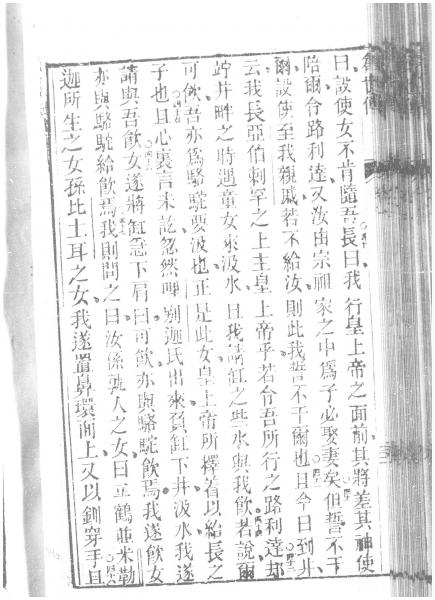 創世傳
曰、設使女不肯隨吾、長曰、我行皇上帝之面前、其將差其神使
陪爾、令路利達、又汝由宗祖家之中爲子必娶妻矣、但誓不干
爾、設使至我親戚、若不給汝、則此我誓不干爾也、且今日到井
云、我長亞伯剌罕之上主皇上帝乎、若令吾所行之路利達、却
竚井畔之時、遇童女來汲水、且我請缸之些水與我飲者、說爾
可飲、吾亦爲駱駝要汲也、正是此女、皇上帝所擇着以給長之
子也、且心裏言未訖、忽然唎別迦氏出來負缸下井汲水、我遂
請與吾飲、女遂將缸急下肩曰、可飲、亦與駱駝飲焉、我遂飲、女
亦與駱駝給飲焉、我則問之曰、汝係孰人之女、曰、鶴並米勒
迦所生之女孫、比土耳之女、我遂置鼻環面上、又以釧穿手、且